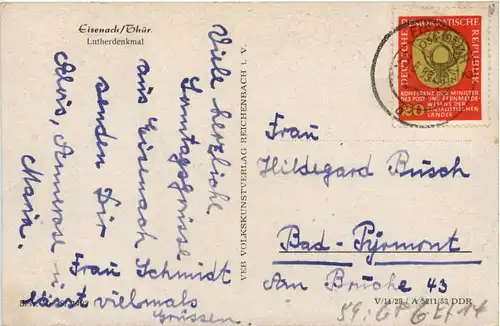 Eisenach/Thür.
Lutherdenkmal
Viele herzliche
Sonntagsgrüsse
aus Eisenach
senden Dir
Alois, Annerose u.
Maria.
Frau Schmidt
lässt vielmals
Grüssen.
VEB VOLKSKUNSTVERLAG REICHENBACH i. V.
DEUTSCHE DEMOKRATISCHE REPUBLIK
KONFERENZ DER MINISTER
DES POST- UND FERNMELDE-
WESENS DER
SOZIALISTISCHEN
LÄNDER
20
Frau
Hildegard Busch
Bad-Pyrmont
Am Bruche 43
V/11/28 / A 5211/53 DDR